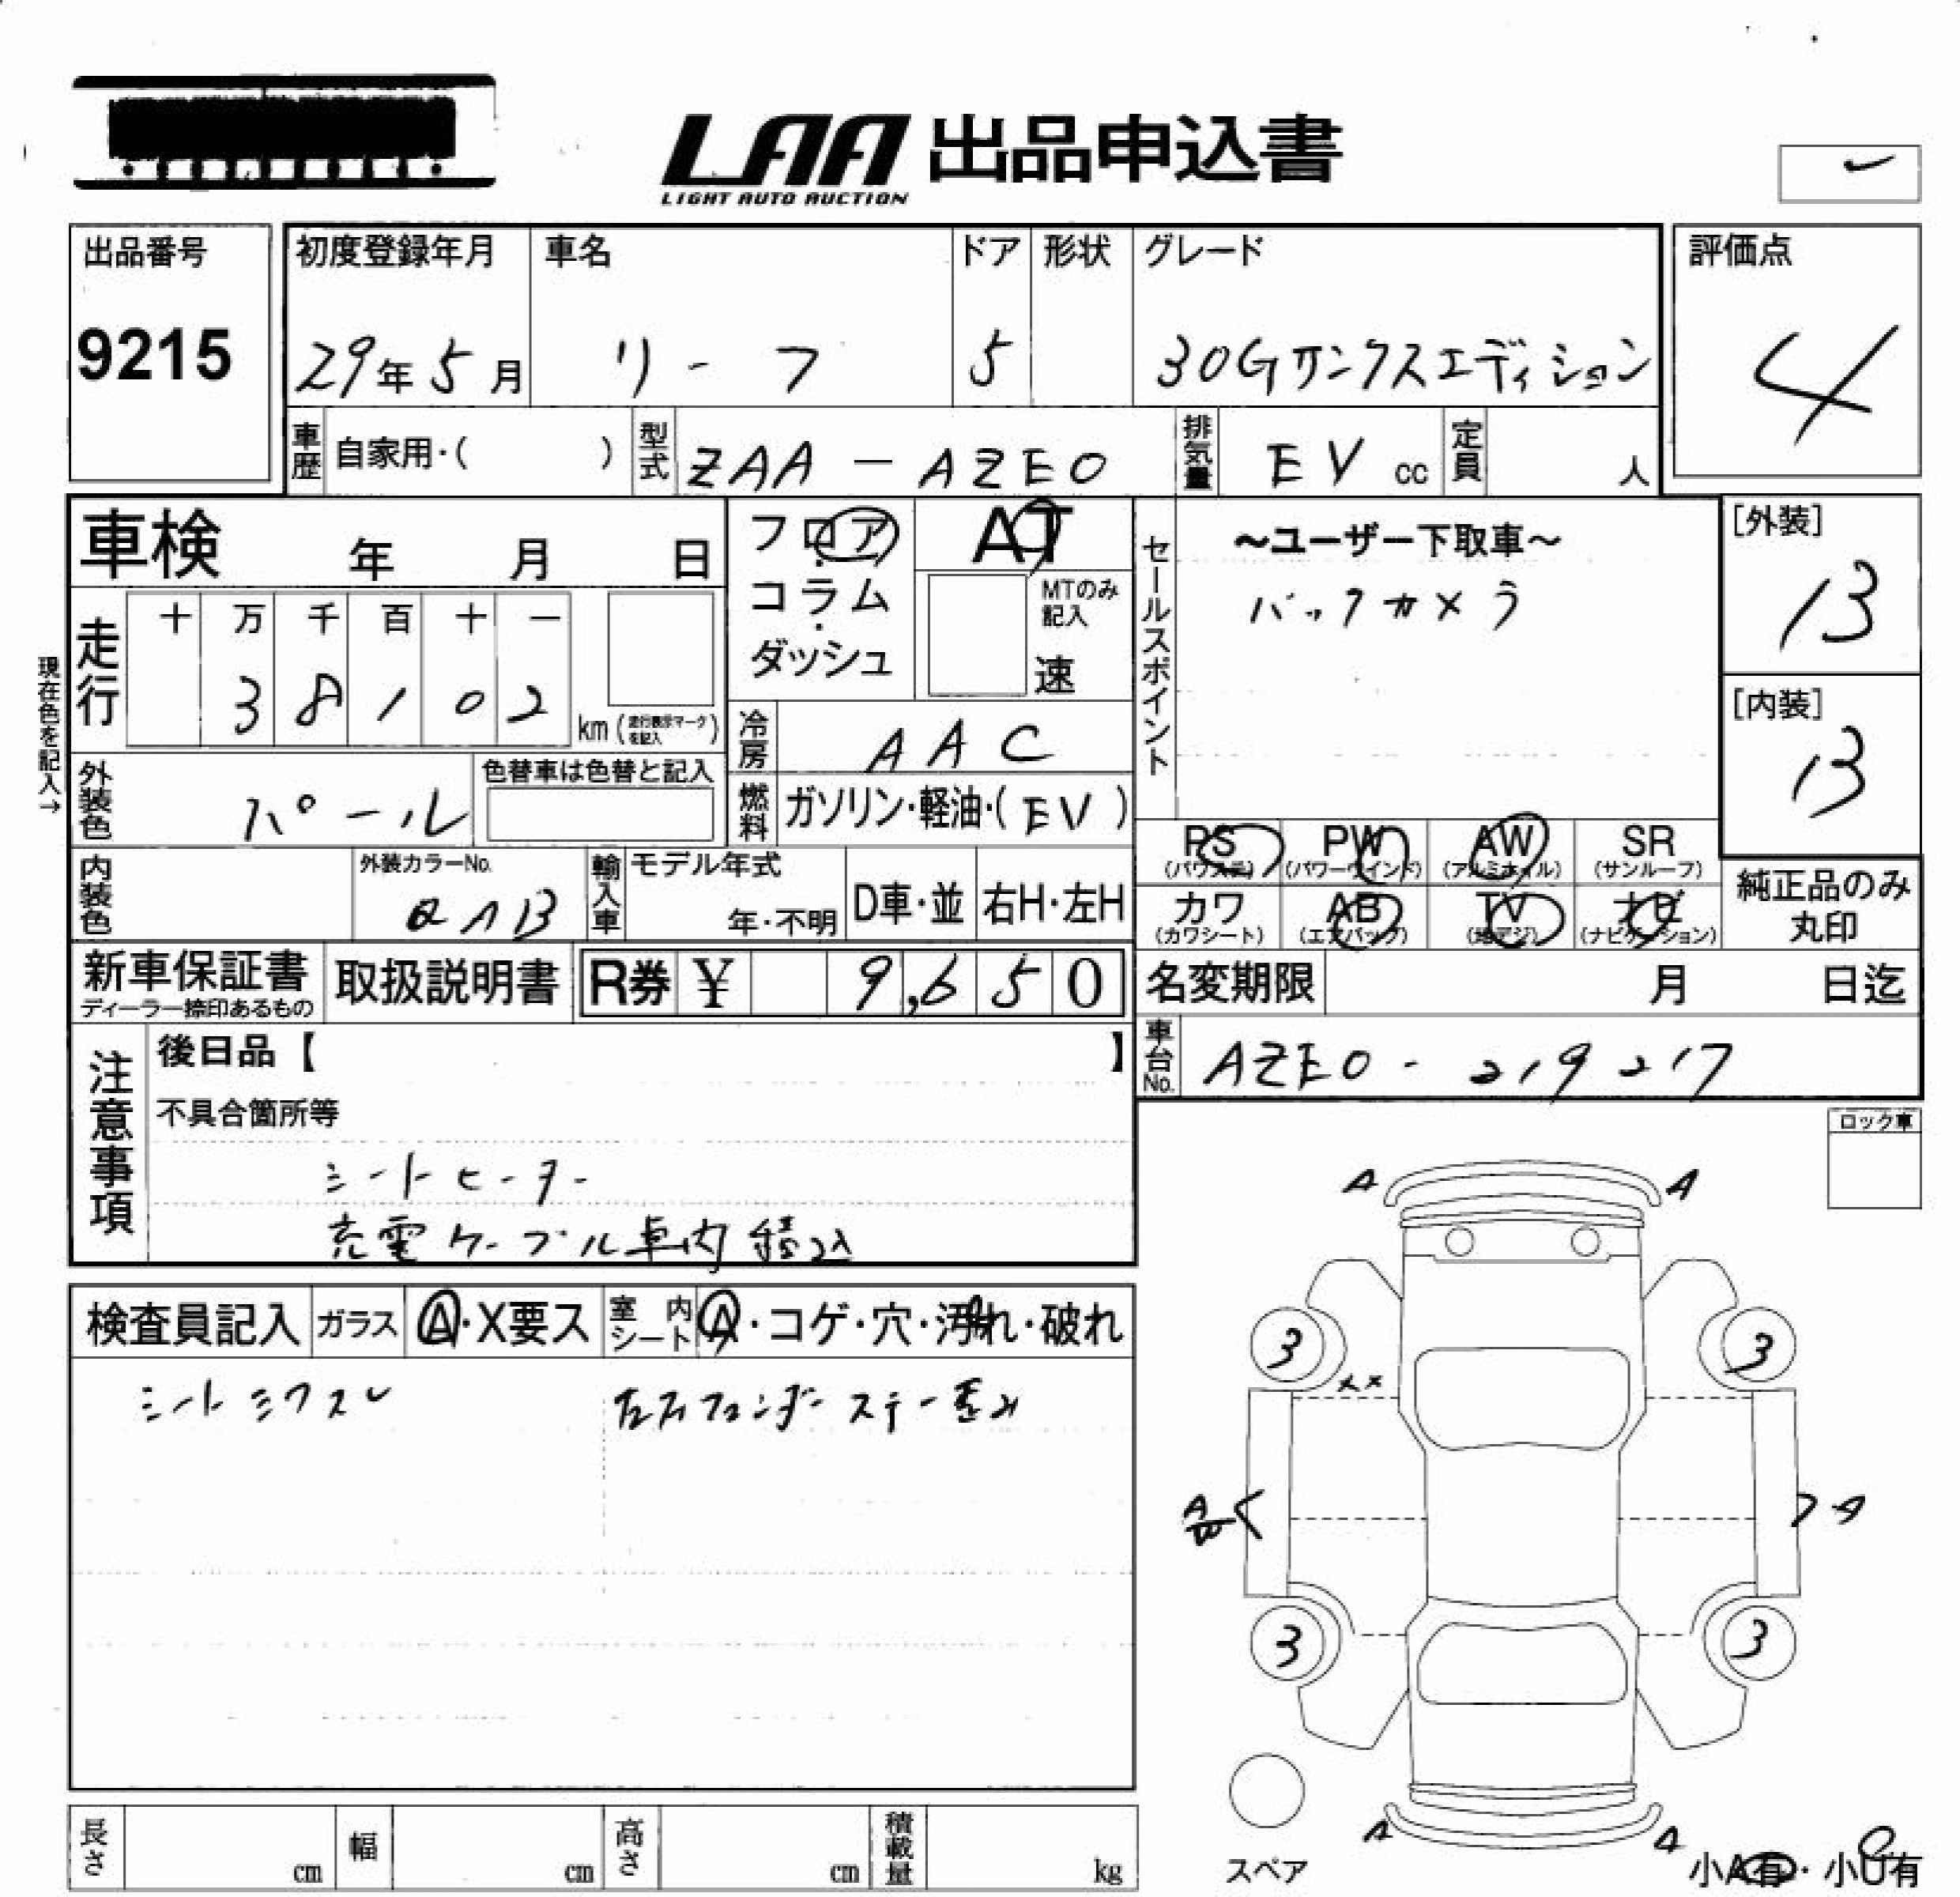 LAA 出品申込書
LIGHT AUTO AUCTION
出品番号
9215
初度登録年月
29年5月
車名
リーフ
ドア
5
形状
グレード
30Gサンクスエディション
評価点
4
車歴
自家用・( )
型式
ZAA-AZE0
排気量
EV cc
定員
人
車検 年 月 日
フロア
・
コラム
・
ダッシュ
AT
MTのみ
記入
速
セールスポイント
〜ユーザー下取車〜
バックカメラ
[外装]
B
[内装]
B
現在色を記入→
走行
十 万 千 百 十 一
3 8 1 0 2
km (走行表示マークを記入)
冷房
AAC
外装色
パール
色替車は色替と記入
燃料
ガソリン・軽油・(EV)
PS
(パワステ)
PW
(パワーウインド)
AW
(アルミホイル)
SR
(サンルーフ)
内装色
外装カラーNo.
QAB
輸入車
モデル年式
年・不明
D車・並
右H・左H
カワ
(カワシート)
AB
(エアバッグ)
TV
(地デジ)
ナビ
(ナビゲーション)
純正品のみ
丸印
新車保証書
ディーラー捺印あるもの
取扱説明書
R券 ¥ 9,650
名変期限 月 日迄
車台No.
AZE0-219217
注意事項
後日品【 】
不具合箇所等
シートヒーター
充電ケーブル車内積込
ロック車
検査員記入
ガラス
A・X要ス
室内シート
A・コゲ・穴・汚れ・破れ
シートミクスレ
左右フェンダーステー歪み
A A
3 3
XX
A
B
A
3 3
A A
スペア
小A有・小U有
長さ cm
幅 cm
高さ cm
積載量 kg